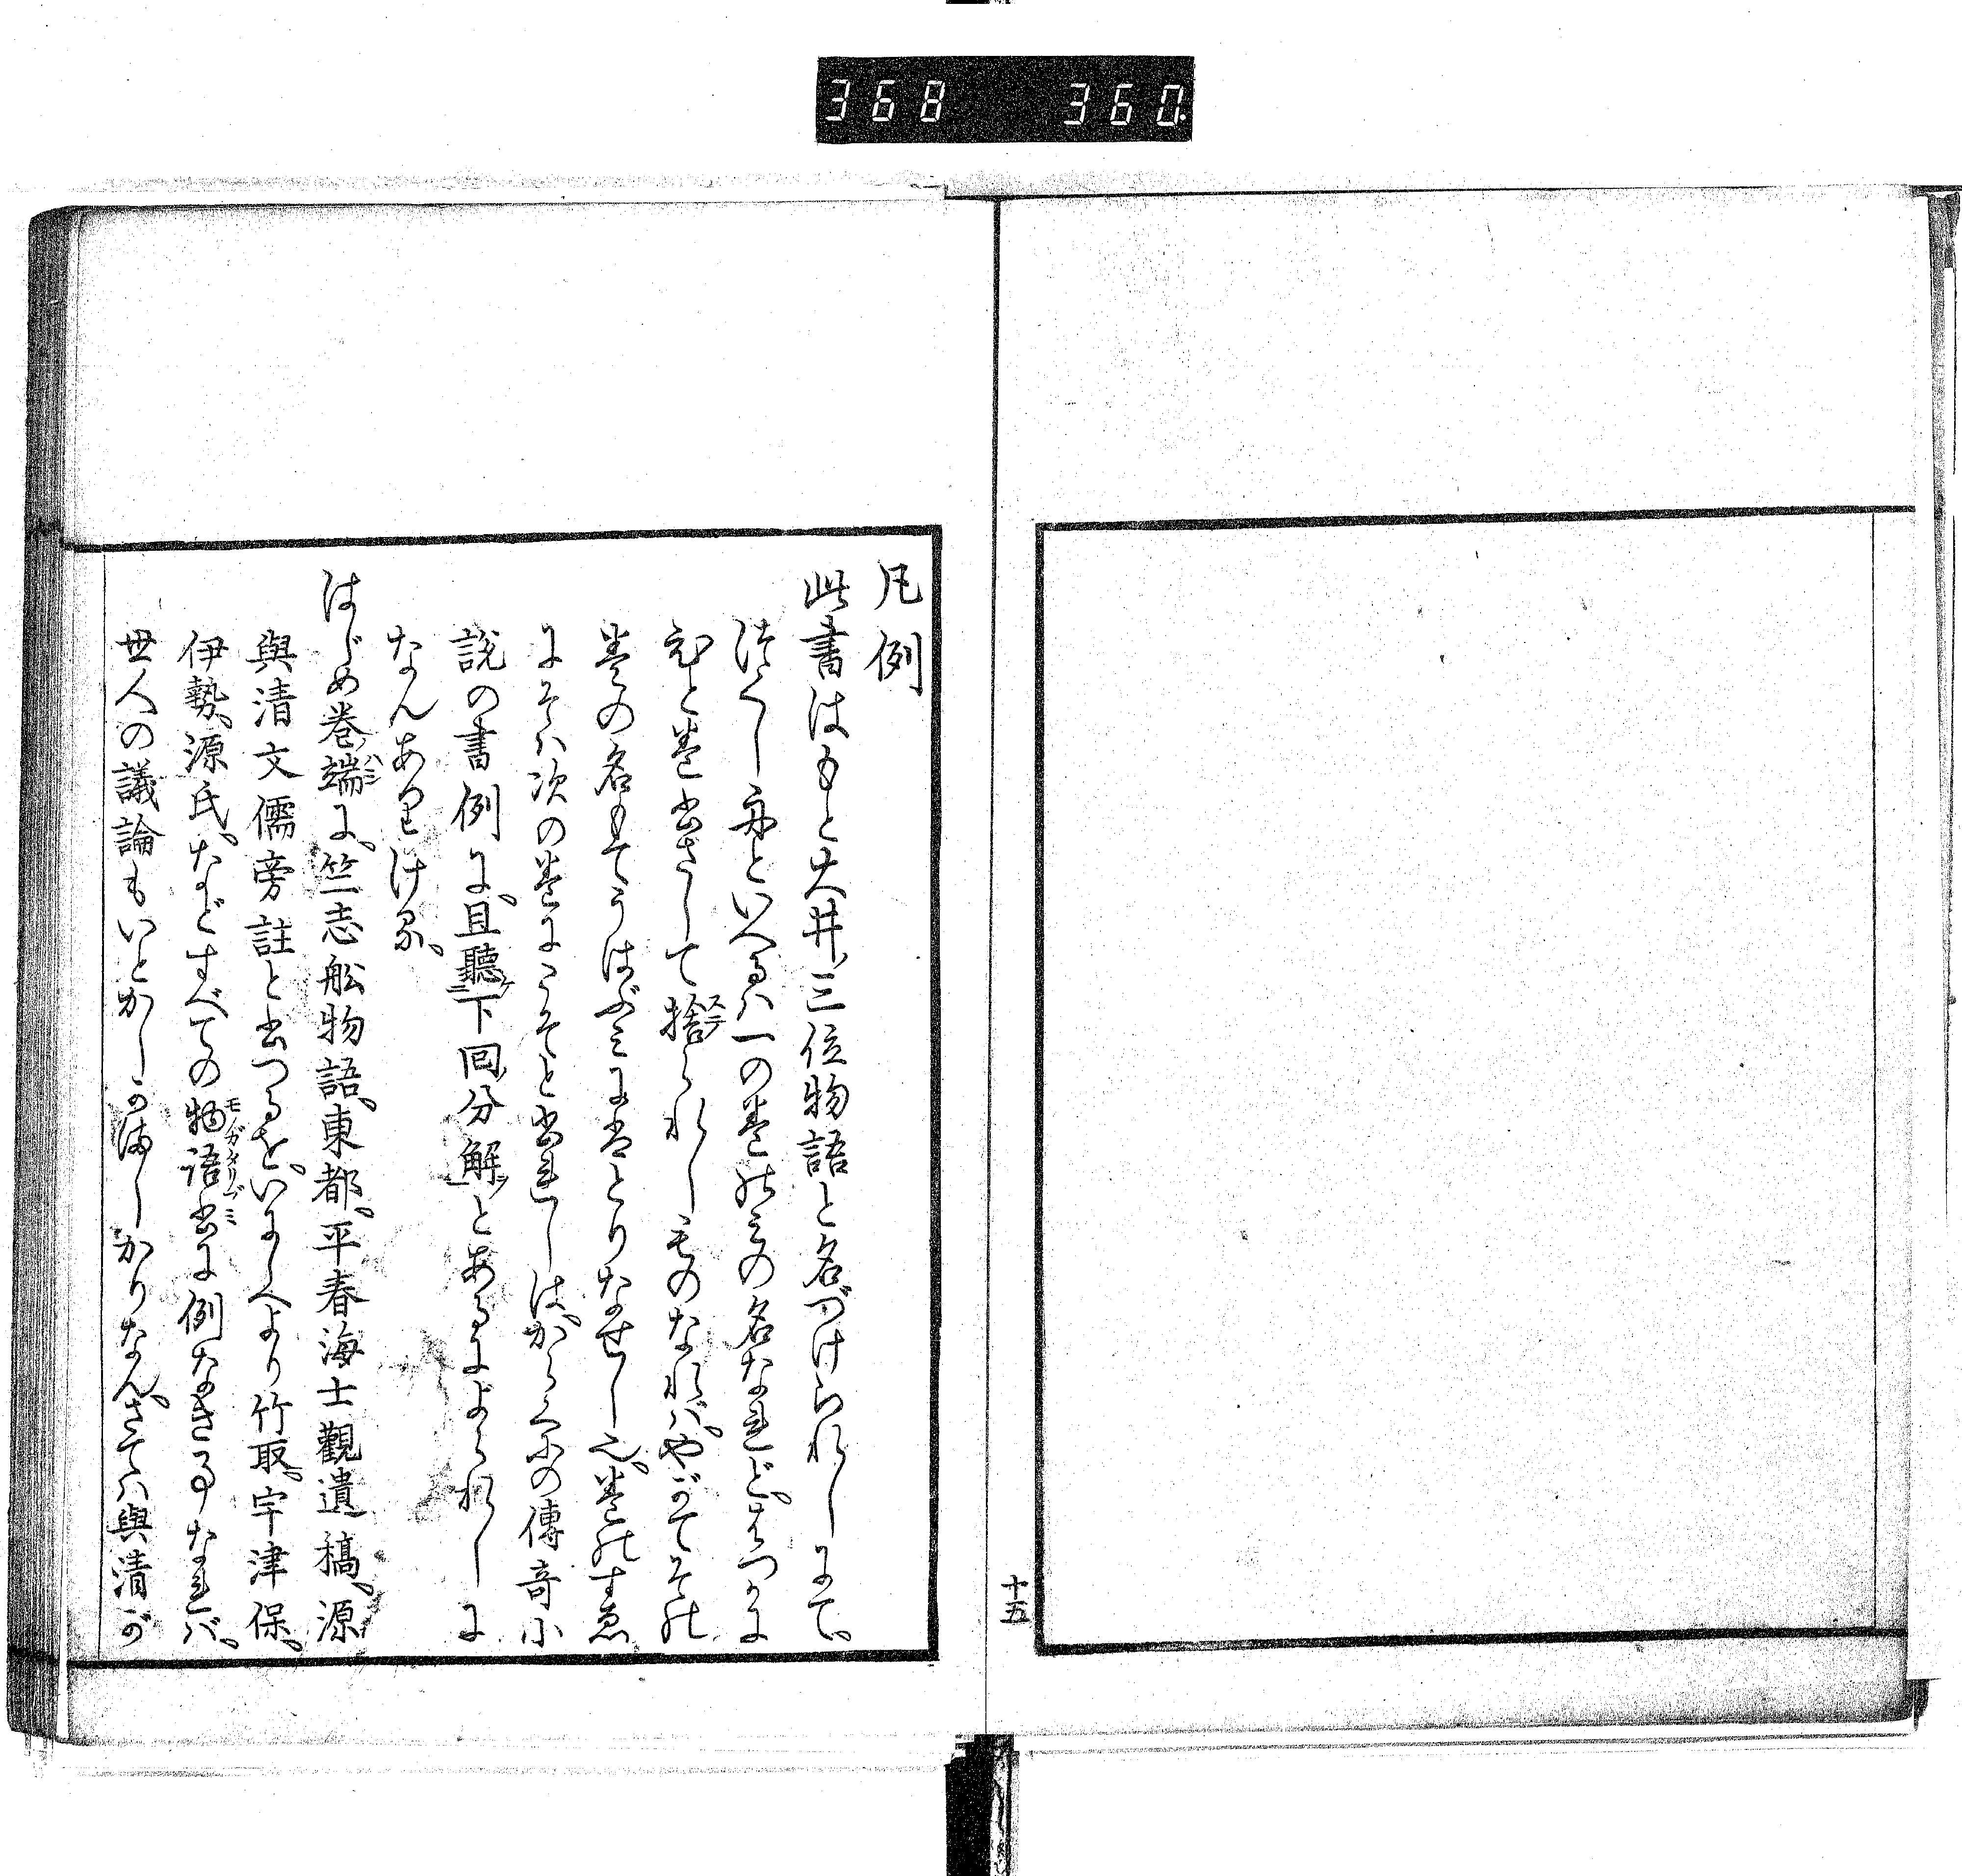 368 360
十五
凡例
此書はもと大井三位物語と名づけられしにて、
つくし舟といへるハ一の巻のミの名なれど、はつかに
ひと巻書さして捨られしものなれバ、やがてその
巻の名もてうはぶミにはとりなせし也、巻のすゑ
にそハ次の巻にこそと書れしは、からくにの傳奇小
説の書例に、且聽下回分解とあるによられしに
なんありける、
はじめ巻端に、竺志舩物語、東都、平春海士觀遺稿、源
與清文儒旁註と書つるを、いにしへより竹取、宇津保、
伊勢、源氏、などすべての物語書に例なき事なれバ、
世人の議論もいとかしかましかりなん、さてハ與清が